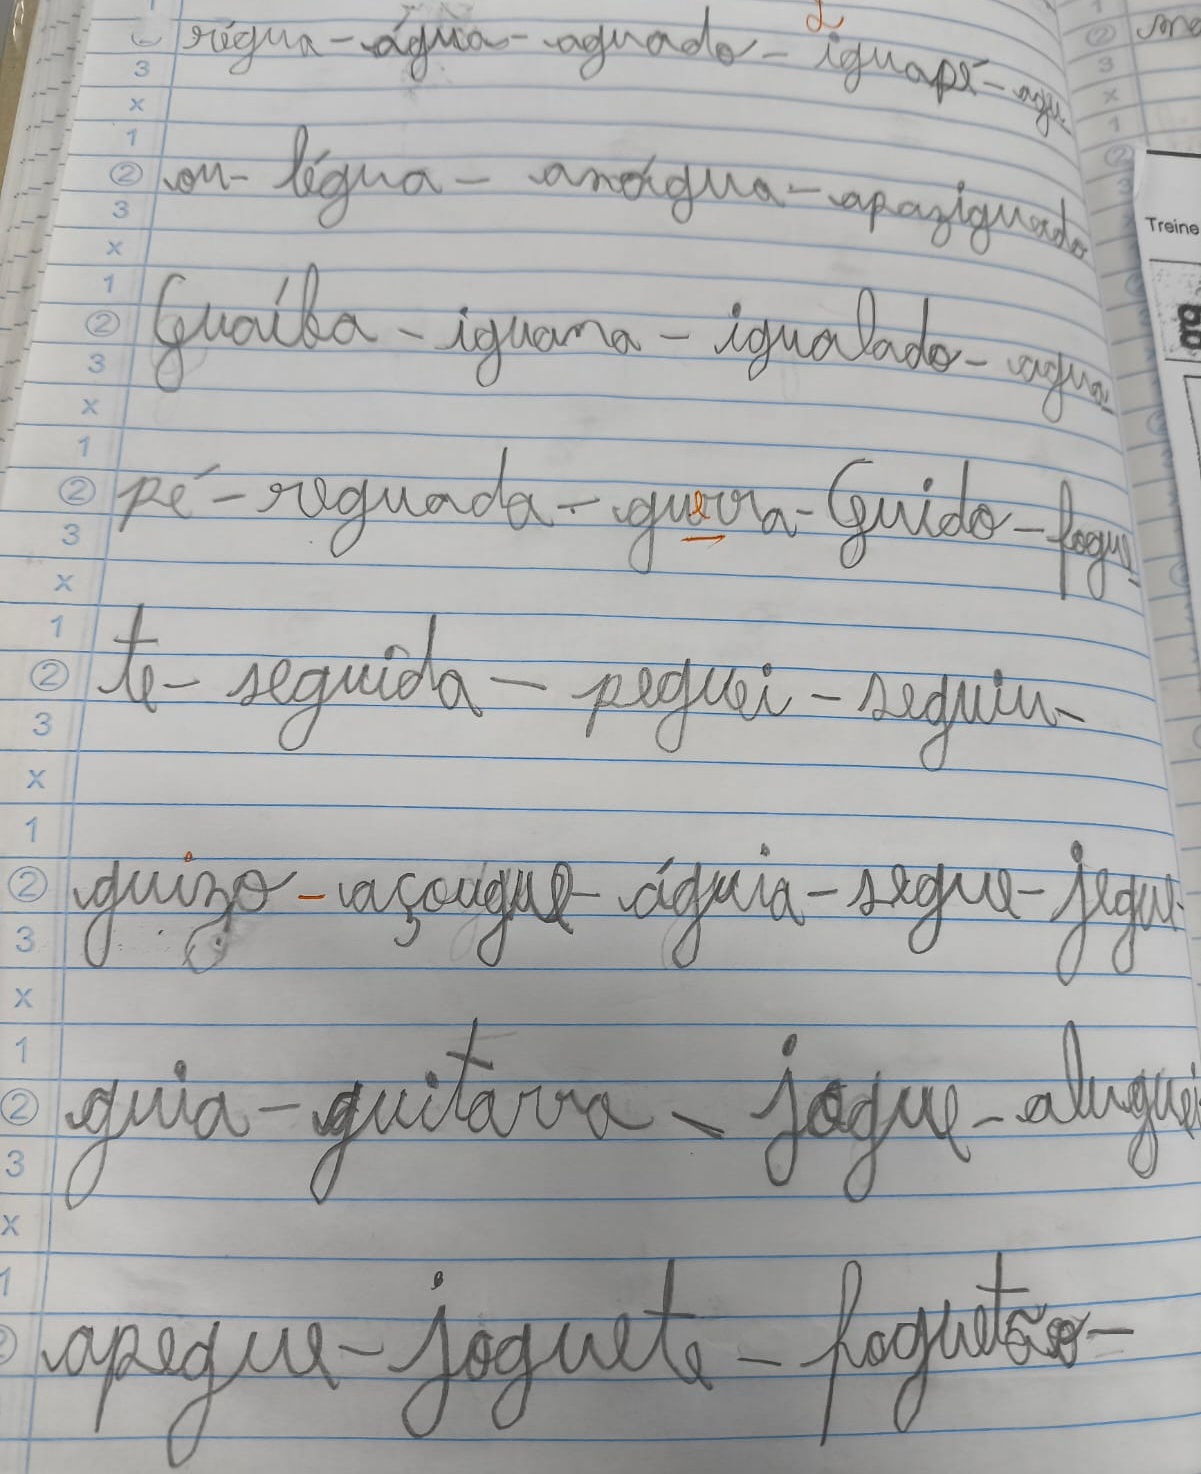 régua - água - aguado - iguapé - agu-
ou - légua - anágua - apaziguado
Guaíba - iguana - igualado - agua
pé - reguada - guerra - Guido - fogue
te - seguida - peguei - seguiu -
guizo - açougue - águia - segue - jegue -
guia - guitarra - jogue - aluguei
apegue - joguete - foguetão -
Treine
g